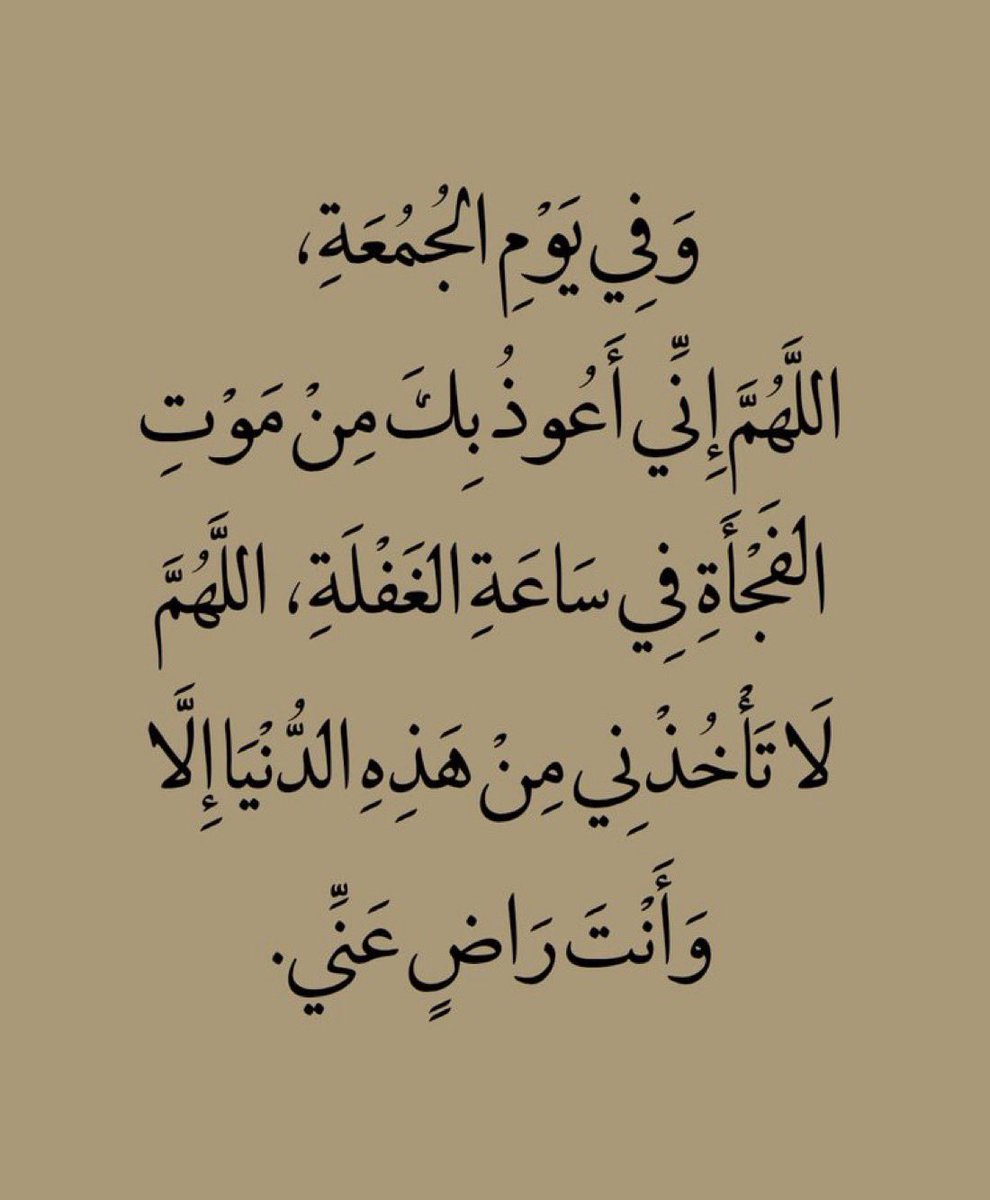 وَفِي يَوْمِ الْجُمُعَةِ،
اللَّهُمَّ إِنِّي أَعُوذُ بِكَ مِنْ مَوْتِ
الفَجْأَةِ فِي سَاعَةِ الغَفْلَةِ، اللَّهُمَّ
لَا تَأْخُذْنِي مِنْ هَذِهِ الدُّنْيَا إِلَّا
وَأَنْتَ رَاضٍ عَنِّي.